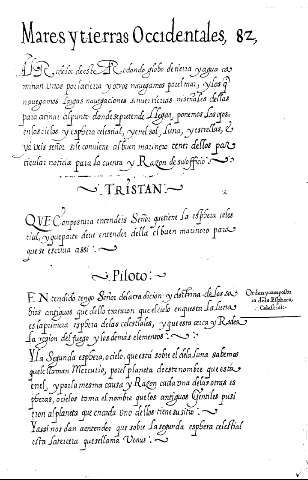 Mares y tierras Occidentales, 82,
Al Rededor deeste Redondo globo detierra y agua ca
minan unos portatierra y otros navegamos porel mar, y los q̃
navegamos largas navegaciones
para atinar al punto donde se pretende llegar, ponemos los ojos
enlos cielos y esphera celestial, y en el sol, luna, y estrellas, &
yavéis señor si le conviene al buen marinero tener dellos par
ticular noticia para la cuenta y Razon de su officio
TRISTAN
QVE Compostura entendéis Señor que tiene la esphera celes
tial, y que parte deve entender della el buen marinero para
que se escriva assi
Piloto
ENtendido tengo Señor dela tradicion y doctrina de los sa
bios antiguos que dello trataron que el cielo en questa la Luna
es la primera esphera delas celestiales, y que esta cerca y Rodea
la region del fuego y los demas elementos
Orden y compostura
dela Esphera
Celestial
Y la Segunda esphera, o cielo, que está sobre el dela luna sabemos
que le llaman Mercurio, por el planeta de este nombre que está
enel, y por la mesma causa y Razon cada una delas otras es
pheras, o cielos toma el nombre que los antiguos Gentiles pusi
eron al planeta que en cada uno dellos tiene su sitio
Y assi nos dan a entender que sobre la segunda esphera celestial
esta la tercera que se llama Venus